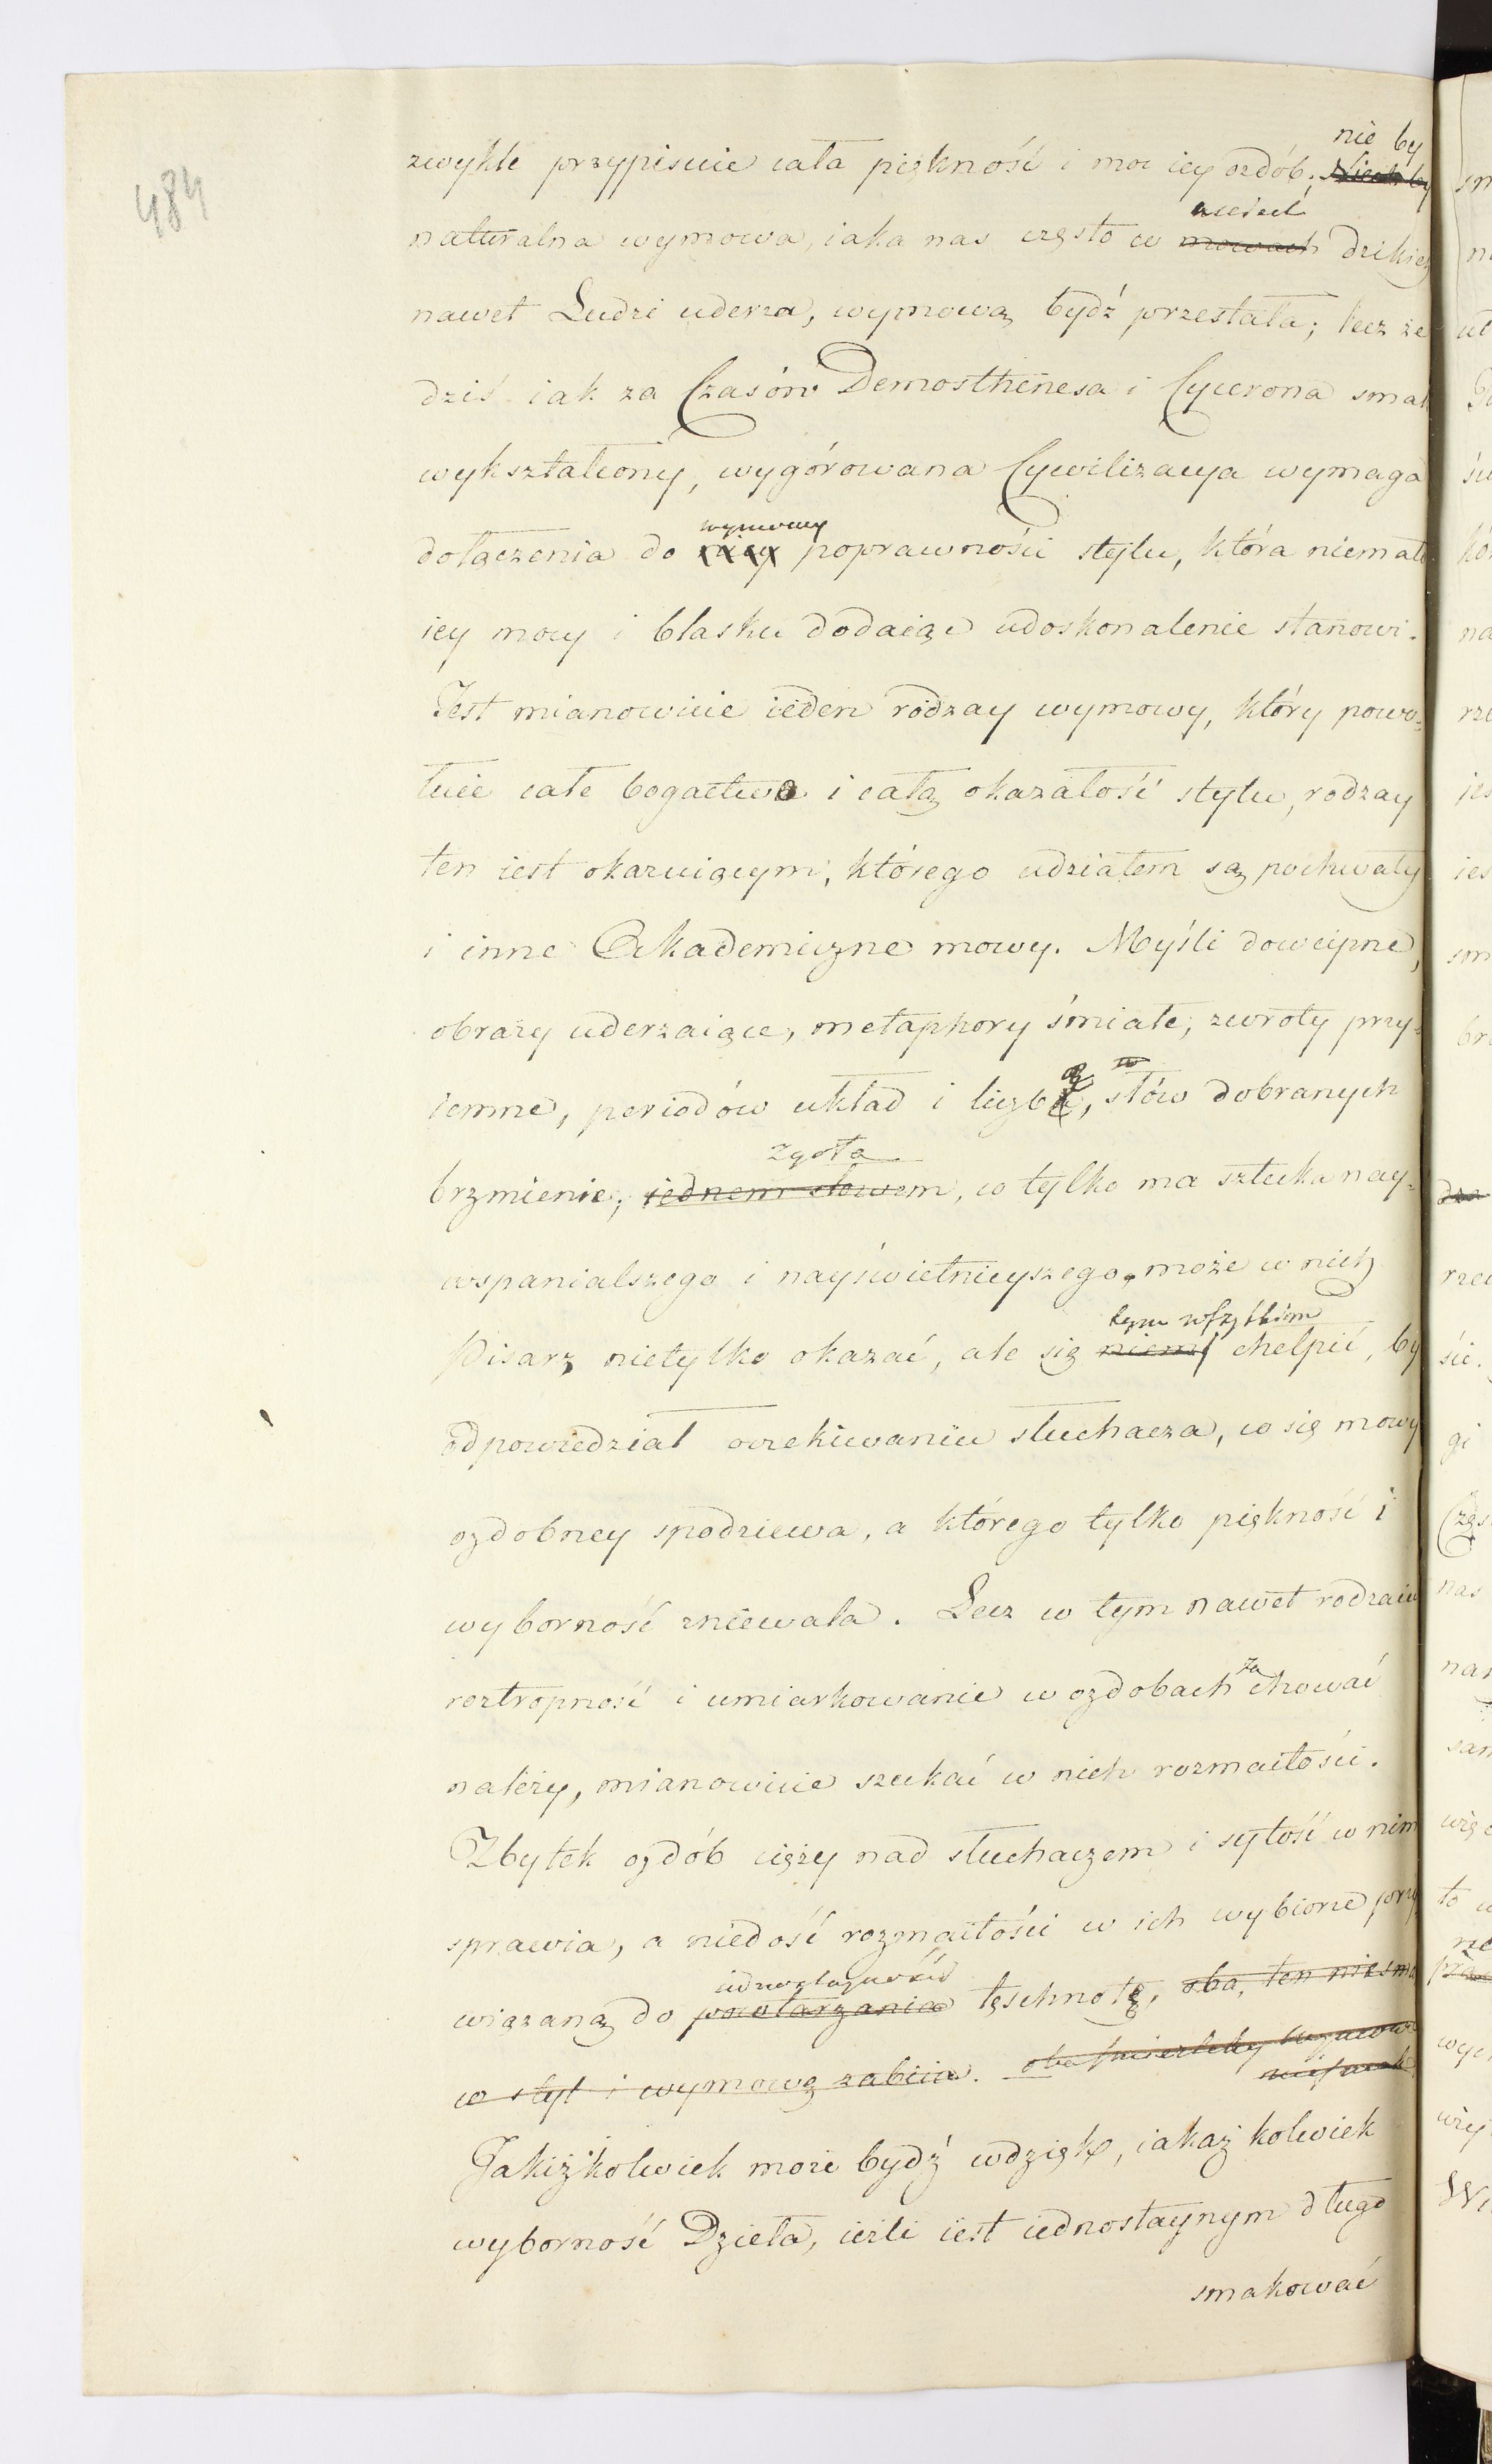 484
nie by
zwykle przypisuie cała piękność i moc iey ozdób;
naturalna wymowa, iaka nas często w mowach dzikich
nawet Ludzi uderza, wymową bydź przestała; lecz że
dziś iak za Czasów Demosthenesa i Cycerona smak
wykształcony, wygórowana Cywilizacya wymaga
wymowy
dołączenia do niey poprawności stylu, która niemało
iey mocy i blasku dodaiąc udoskonalenie stanowi.
Jest mianowicie ieden rodzay wymowy, który powo-
łuie całe bogactwo i całą okazałość stylu, rodzay
ten iest okazuiącym, którego udziałem są pochwały
i inne Akademiczne mowy. Myśli dowcipne,
obrazy uderzaiące, metaphory śmiałe, zwroty przy-
iemne, periodów układ i liczba, słów dobranych
zgoła
brzmienie, iednem słowem, co tylko ma sztuka nay-
wspanialszego i nayświetnieyszego, może w nich
tym wszystkim
Pisarz nietylko okazać, ale się niemi chełpić, by
odpowiedział oczekiwaniu słuchacza, co się mowy
ozdobney spodziewa, a którego tylko piękność i
wyborność zniewala. Lecz w tym nawet rodzaiu
roztropność i umiarkowanie w ozdobach zachować
należy, mianowicie szukać w nich rozmaitości.
Zbytek ozdób cięży nad słuchaczem i sytość w nim
sprawia, a niedość rozmaitości w ich wybiorze przy
wiązaną do powtarzania tęschnotę, oba, ten niesmak
w styl i wymowę zabiia.
Jakiżkolwiek może bydź wdzięk, iakaż kolwiek
wyborność Dzieła, ieżli iest iednostaynym długo
smakować